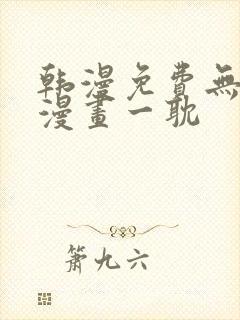 韩漫免費無
漫畫一耽
箫九六